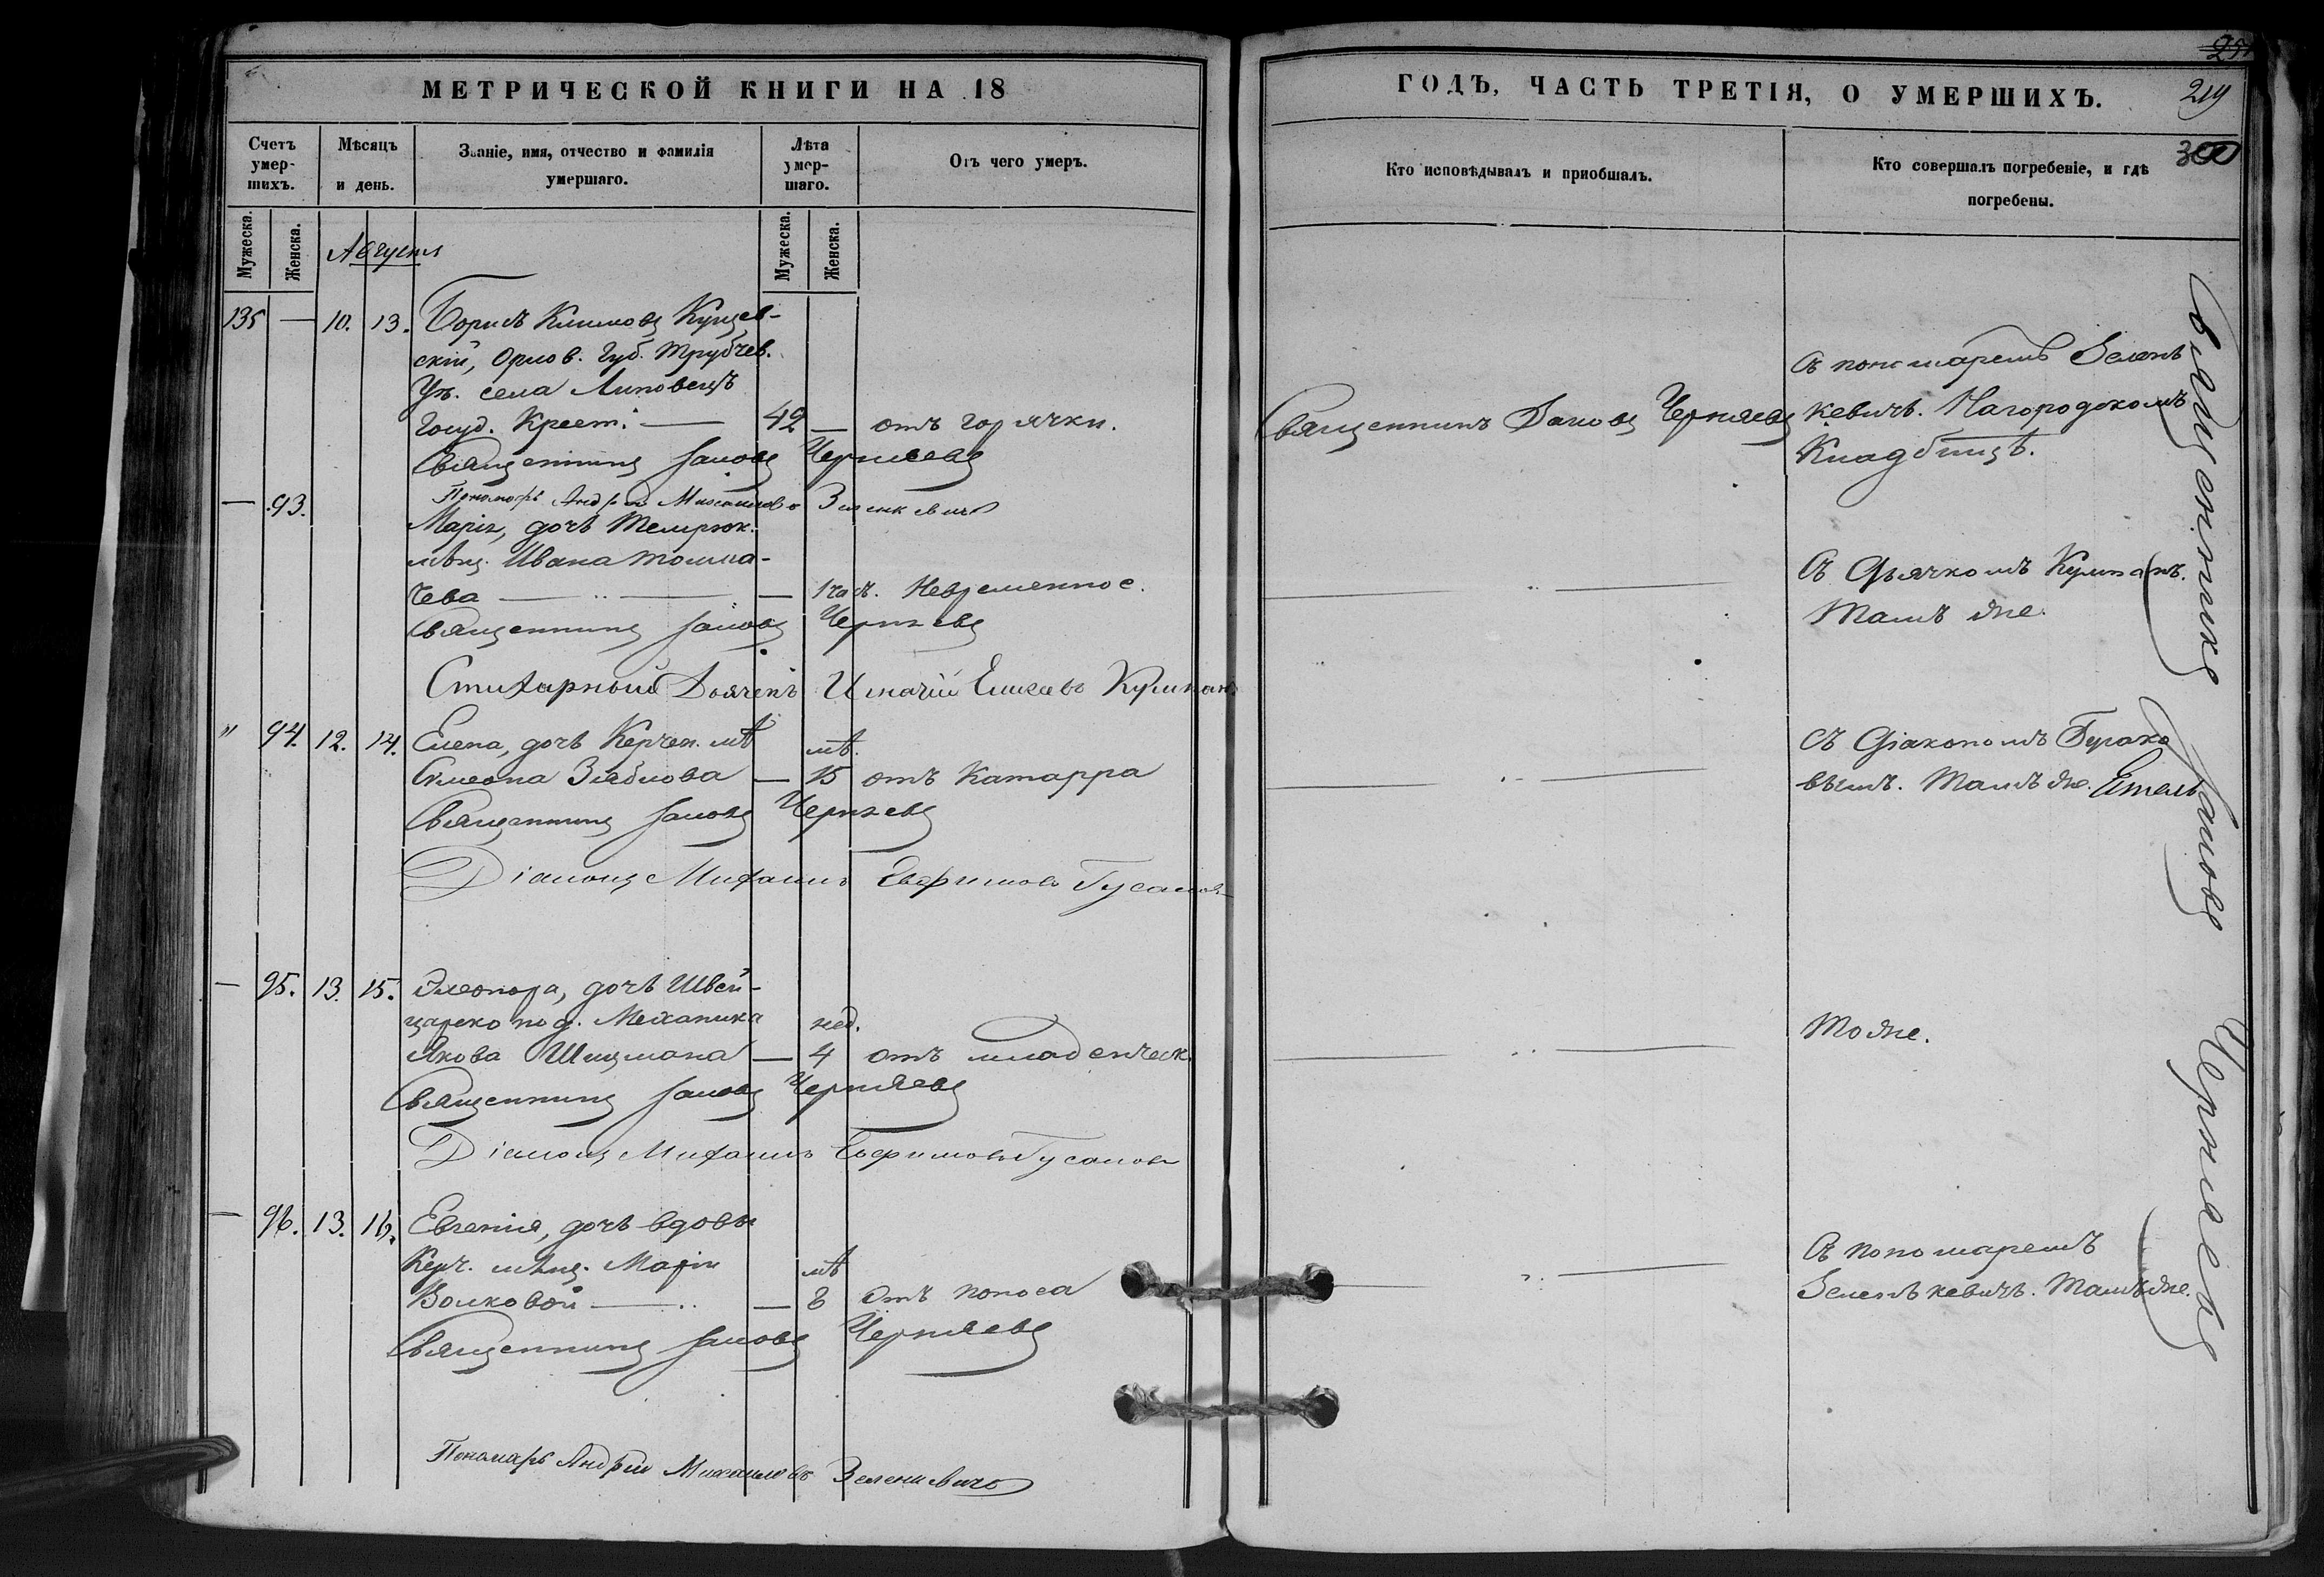 МЕТРИЧЕСКОЙ КНИГИ НА 18
Счетъ умер-шихъ.
Мѣсяцъ и день.
Званіе, имя, отчество и фамилія умершаго.
Лѣта умер-шаго.
Отъ чего умеръ.
Мужеска.
Женска.
Мужеска.
Женска.
Августъ
135 — 10. 13. Борисъ Климовъ Кущев-
скій, Орлов. Губ. Трубчев.
Уѣз. села Липовецъ
Госуд. Крест. — 42 — отъ горячки.
Священникъ Іаковъ Черняевъ
Пономарь Андрей Михаиловъ Зеленкевичъ
— 93. Марія, дочь Темрюк.
мѣщ. Ивана Толма-
чева — — 1 час. Невременное.
Священникъ Іаковъ Черняевъ
Стихарный Дьячекъ Игнатій Елисеевъ Кулипан
" 94. 12. 14. Елена, дочь Керчен. мѣ
мѣ.
Симеона Зяблова — 15 отъ Катарра
Священникъ Іаковъ Черняевъ
Діаконъ Михаилъ Евфимовъ Гусаков
— 95. 13. 15. Элеонора, дочь Швей-
царско под. Механика нед.
Якова Шицмана — 4 отъ младенческ.
Священникъ Іаковъ Черняевъ
Діаконъ Михаилъ Евфимовъ Гусаковъ
— 96. 13. 16. Евгенія, дочь вдовы
Керч. мѣщ. Маріи мѣ
Волковой — — 8 отъ поноса
Священникъ Іаковъ Черняевъ
Пономарь Андрей Михаиловъ Зеленкевичъ
ГОДЪ, ЧАСТЬ ТРЕТІЯ, О УМЕРШИХЪ.
219
300
Кто исповѣдывалъ и пріобщалъ.
Кто совершалъ погребеніе, и гдѣ погребены.
Священникъ Іаковъ Черняевъ
Съ пономаремъ Зелень
кевичъ. На городскомъ
Кладбищѣ.
Съ Дьячкомъ Кулипан.
Тамъ же.
Съ Діакономъ
Тамъ же.
Тоже.
Съ пономаремъ
Зеленькевичъ. Тамъ же.
Священникъ Іаковъ Черняевъ